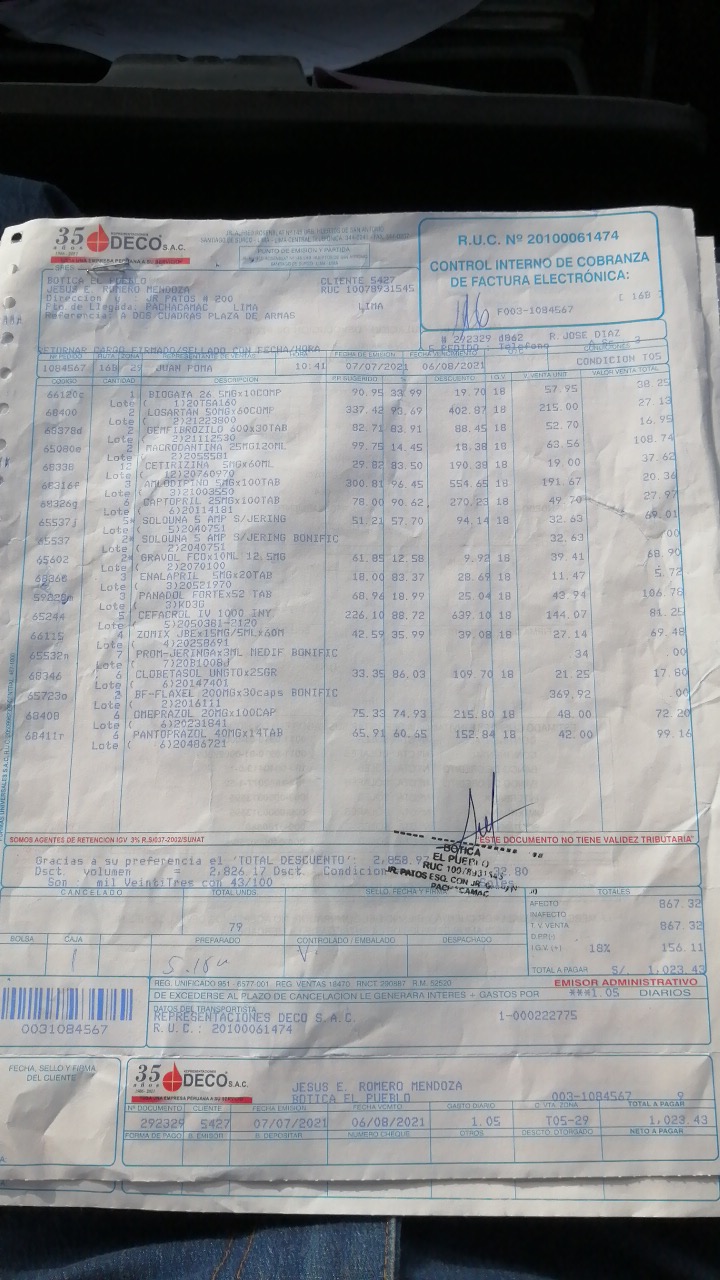 35 años
REPRESENTACIONES
DECO S.A.C.
UNA EMPRESA PERUANA A SU SERVICIO
PUNTO DE EMISION Y PARTIDA
R.U.C. Nº 20100061474
CONTROL INTERNO DE COBRANZA
DE FACTURA ELECTRÓNICA:
[ 16B ]
F003-1084567
SRES
BOTICA EL PUEBLO CLIENTE 5427
JESUS E. ROMERO MENDOZA RUC 10078931545
Direccion : JR PATOS # 200
Pto.de Llegada: PACHACAMAC LIMA LIMA
Referencia: A DOS CUADRAS PLAZA DE ARMAS
# 292329 d862 R.JOSE DIAZ
S.PEDIDO Telefono
RETORNAR CARGO FIRMADO/SELLADO CON FECHA/HORA
Nº PEDIDO RUTA ZONA REPRESENTANTE DE VENTAS HORA FECHA DE EMISION FECHA VENCIMIENTO
1084567 16B 29 JUAN POMA 10:41 07/07/2021 06/08/2021 CONDICION T05
CODIGO CANTIDAD DESCRIPCION PR.SUGERIDO % DESCUENTO I.G.V. V. VENTA UNIT VALOR VENTA TOTAL
66120c 1 BIOGAIA 26 5MGx10COMP 90.95 33.99 19.70 18 57.95 38.25
Lote ( 1)20T5A160
68400 2 LOSARTAN 50MGx60COMP 337.42 93.69 402.87 18 215.00 27.13
Lote ( 2)21223800
65378d 2 GEMFIBROZILO 600x30TAB 82.71 83.91 88.45 18 52.70 16.95
Lote ( 2)21112530
65080e 2 MACRODANTINA 25MG120ML 99.75 14.45 18.38 18 63.56 108.74
Lote ( 2)2055581
68338 12 CETIRIZINA 5MGx60ML 29.82 83.50 190.38 18 19.00 37.62
Lote ( 12)20760970
68316f 3 AMLODIPINO 5MGx100TAB 300.81 96.45 554.65 18 191.67 20.36
Lote ( 3)21003550
68326g 6 CAPTOPRIL 25MGx100TAB 78.00 90.62 270.23 18 49.70 27.97
Lote ( 6)20114181
65537j 5* SOLOUNA 5 AMP S/JERING 51.21 57.70 94.14 18 32.63 69.01
Lote ( 5)2040751
65537 2* SOLOUNA 5 AMP S/JERING BONIFIC 32.63 .00
Lote ( 2)2040751
65602 2* GRAVOL FCOx10ML 12.5MG 61.85 12.58 9.92 18 39.41 68.90
Lote ( 2)2070100
68368 3 ENALAPRIL 5MGx20TAB 18.00 83.37 28.69 18 11.47 5.72
Lote ( 3)20521970
3 PANADOL FORTEx52 TAB 68.96 18.99 25.04 18 43.94 106.78
Lote ( 3)KD3G
65244 5 CEFACROL IV 1000 INY 226.10 88.72 639.10 18 144.07 81.25
Lote ( 5)2050381-2120
66115 4 ZOMIX JBEx15MG/5MLx60M 42.59 35.99 39.08 18 27.14 69.48
Lote ( 4)20258691
65532n 7 PROM-JERINGAx3ML MEDIF BONIFIC 34 .00
Lote ( 7)20B1008J
68346 6 CLOBETASOL UNGTOx25GR 33.35 86.03 109.70 18 21.25 17.80
Lote ( 6)20147401
65723o 2 BF-FLAXEL 200MGx30caps BONIFIC 369.92 .00
Lote ( 2)2016111
68408 6 OMEPRAZOL 20MGx100CAP 75.33 74.93 215.80 18 48.00 72.20
Lote ( 6)20231841
68411r 6 PANTOPRAZOL 40MGx14TAB 65.91 60.65 152.84 18 42.00 99.16
Lote ( 6)20486721
SOMOS AGENTES DE RETENCION IGV 3% R.S/037-2002/SUNAT
"ESTE DOCUMENTO NO TIENE VALIDEZ TRIBUTARIA"
Gracias a su preferencia el 'TOTAL DESCUENTO': 2,858.97
Dsct. volumen = 2,826.17 Dsct. Condicion 32.80
Son : mil VeintiTres con 43/100
BOTICA
EL PUEBLO
RUC 10078931545
JR. PATOS ESQ. CON JR.
PACHACAMAC
CANCELADO TOTAL UNDS SELLO, FECHA Y FIRMA TOTALES
79
AFECTO 867.32
INAFECTO
T. V. VENTA 867.32
D.P.P.(-)
I.G.V. (+) 18% 156.11
TOTAL A PAGAR S/. 1,023.43
BOLSA CAJA PREPARADO CONTROLADO / EMBALADO DESPACHADO
REG. UNIFICADO 951 - 6577-001. REG. VENTAS 10470 RNCT. 290887 R.M. 52520
EMISOR ADMINISTRATIVO
DE EXCEDERSE AL PLAZO DE CANCELACION LE GENERARA INTERES + GASTOS POR ***1.05 DIARIOS
DATOS DEL TRANSPORTISTA
REPRESENTACIONES DECO S.A.C. 1-000222775
R.U.C.: 20100061474
0031084567
FECHA, SELLO Y FIRMA
DEL CLIENTE
35 años
REPRESENTACIONES
DECO S.A.C.
UNA EMPRESA PERUANA A SU SERVICIO
JESUS E. ROMERO MENDOZA
BOTICA EL PUEBLO 003-1084567 9
Nº DOCUMENTO CLIENTE FECHA EMISION FECHA VCMTO GASTO DIARIO C. VTA. ZONA TOTAL A PAGAR
292329 5427 07/07/2021 06/08/2021 1.05 T05-29 1,023.43
FORMA DE PAGO B. EMISOR B. DEPOSITAR NUMERO CHEQUE OTROS DESCTO. OTORGADO NETO A PAGAR